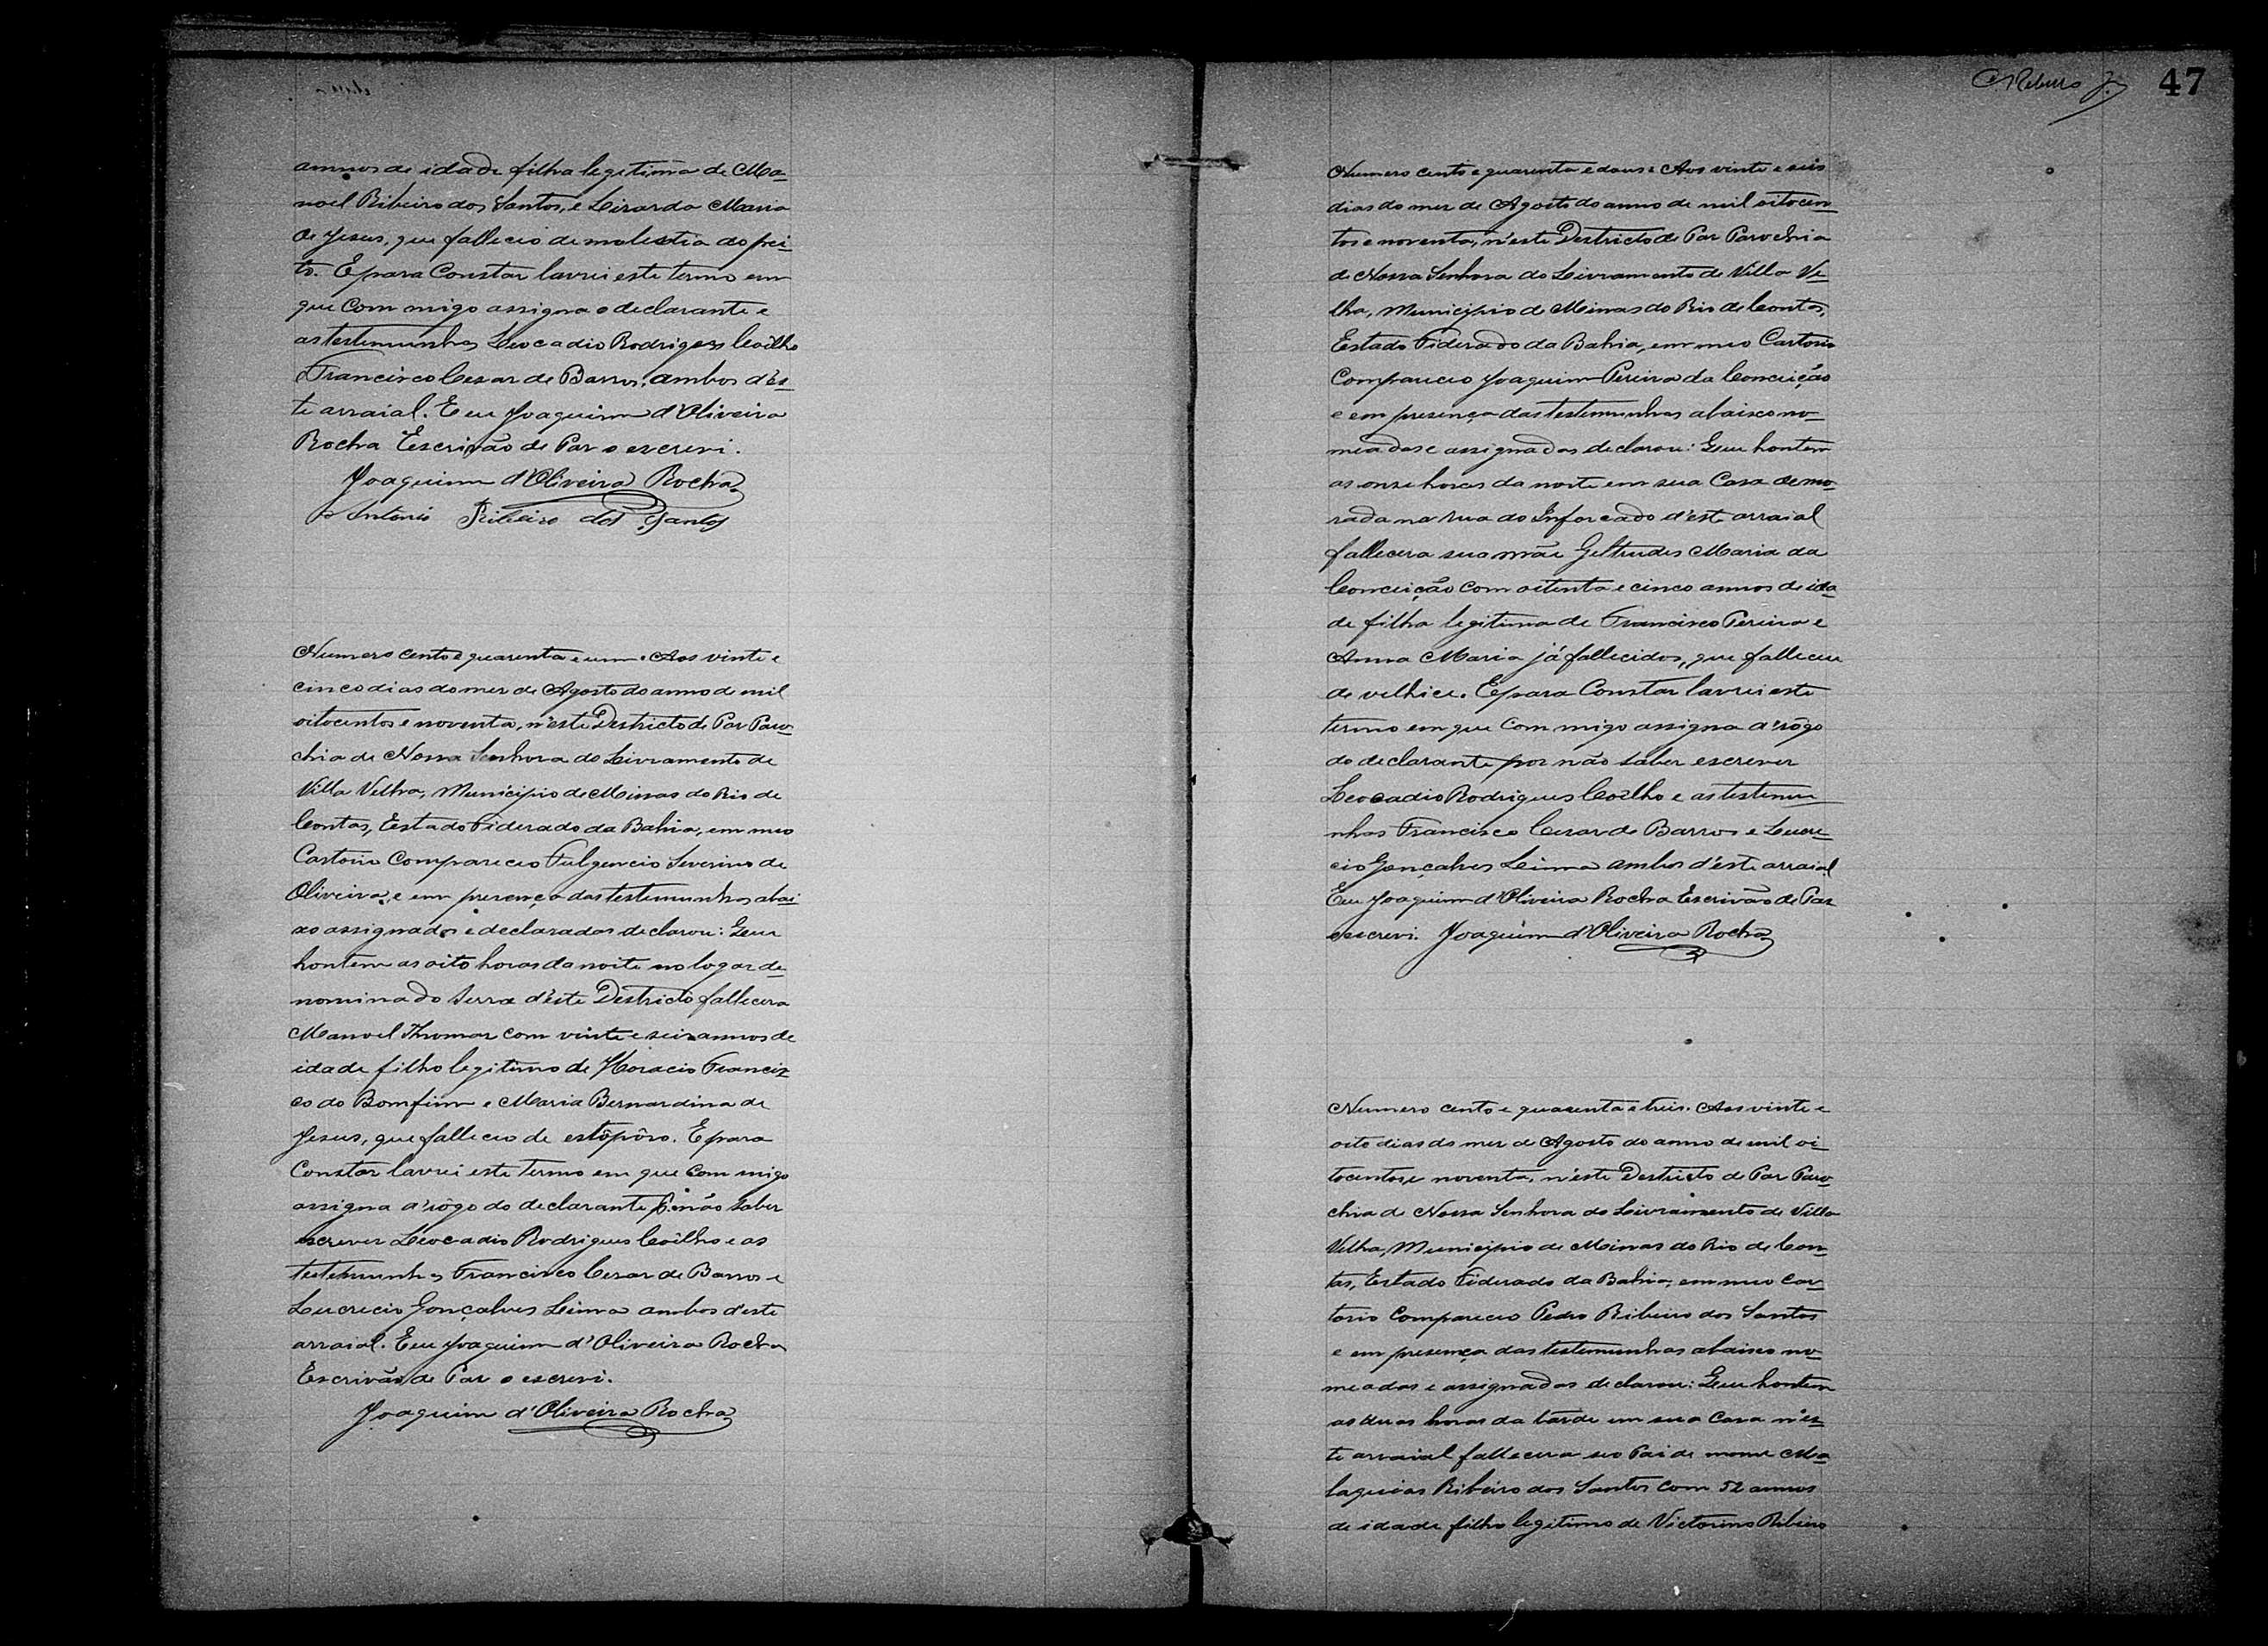 annos de idade filha legitima de Ma-
noel Ribeiro dos Santos, e Lizarda Maria
de Jesus, que falleceo de molestia do pei-
to. E para Constar lavrei este termo em
que Com migo assigna o declarante e
as testemunhas Leocadio Rodrigues Coêlho
Francisco Cesar de Barros, ambos d'es-
te arraial. E eu Joaquim d'Oliveira
Rocha Escrivão de Paz o escrevi.
Joaquim d'Oliveira Rocha
Antonio Ribeiro dos Santos
Numero cento e quarenta e um. Aos vinte e
cinco dias do mez de Agosto do anno de mil
oitocentos e noventa, n'este Destricto de Paz Paro-
chia de Nossa Senhora do Livramento de
Villa Velha, Municipio de Minas do Rio de
Contas, Estado Fiderado da Bahia, em meo
Cartorio Compareceo Fulgencio Severino de
Oliveira, e em presença das testemunhas abai-
xo assignados e declaradas declarou: Que
hontem as oito horas da noite no logar de-
nominado Serra d'este Destricto fallecera
Manoel Thomaz com vinte e seis annos de
idade filho legitimo de Horacio Francis-
co do Bomfim e Maria Bernardina de
Jesus, que falleceo de estôpôro. E para
Constar lavrei este termo em que Com migo
assigna a'rôgo do declarante p. não saber
escrever Leocadio Rodrigues Coêlho e as
testemunhas Francisco Cezar de Barros e
Lucrecio Gonçalves Leima ambos d'este
arraial. Eu Joaquim d'Oliveira Rocha
Escrivão de Paz o escrevi.
Joaquim d'Oliveira Rocha
47
Numero cento e quarenta e dous: Aos vinte e seis
dias do mez de Agosto do anno de mil oitocen-
tos e noventa, n'este Destricto de Paz Parochia
de Nossa Senhora do Livramento de Villa Ve-
lha, Municipio de Minas do Rio de Contas,
Estado Fiderado da Bahia, em meo Cartorio
Compareceo Joaquim Pereira da Conceição
e em presença das testemunhas abaixo no-
meadas e assignadas declarou: Que hontem
as onze horas da noite em sua Casa de mo-
rada na rua do Enforcado d'este arraial
fallecera sua mãe Geltrudes Maria da
Conceição Com oitenta e cinco annos de ida-
de filha legitima de Francisco Pereira e
Anna Maria já fallecidos, que falleceu
de velhice. E para Constar lavrei este
termo em que Com migo assigna a'rôgo
do declarante por não saber escrever
Leocadio Rodrigues Coêlho e as testemu-
nhas Francisco Cesar de Barros e Lucre-
cio Gonçalves Leima ambos d'este arraial
Eu Joaquim d'Oliveira Rocha Escrivão de Paz
escrevi. Joaquim d'Oliveira Rocha
Numero cento e quarenta e treis. Aos vinte e
oito dias do mez de Agosto do anno de mil oi-
tocentos e noventa, n'este Destricto de Paz Paro-
chia de Nossa Senhora do Livramento de Villa
Velha, Municipio de Minas do Rio de Con-
tas, Estado Fiderado da Bahia, em meo Car-
torio Compareceo Pedro Ribeiro dos Santos
e em presença das testemunhas abaixo no-
meadas e assignadas declarou: Que hontem
as duas horas da tarde em sua Casa n'es-
te arraial fallecera seo Pai de nome Ma-
laquias Ribeiro dos Santos Com 52 annos
de idade filho legitimo de Victorino Ribeiro